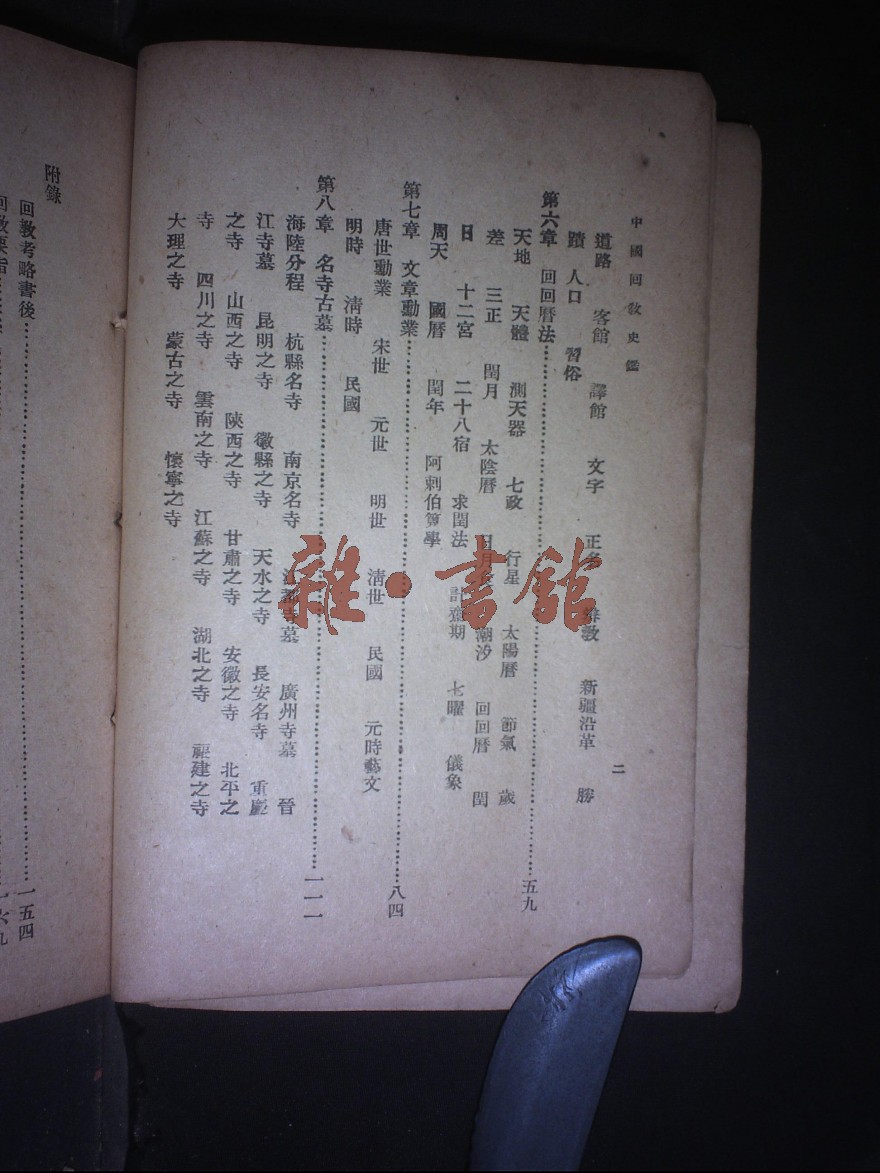 中國回教史鑑
二
道路 客館 譯館 文字 正名 奉教 新疆沿革 勝
蹟 人口 習俗
第六章 回回曆法……五九
天地 天體 測天器 七政 行星 太陽曆 節氣 歲
差 三正 閏月 太陰曆 日月食 潮汐 回回曆 閏
日 十二宮 二十八宿 求閏法 計齋期 七曜 儀象
周天 國曆 閏年 阿剌伯算學
第七章 文章勳業……八四
唐世勳業 宋世 元世 明世 淸世 民國 元時藝文
明時 淸時 民國
第八章 名寺古墓……一一一
海陸分程 杭縣名寺 南京名寺 江都寺墓 廣州寺墓 晉
江寺墓 昆明之寺 徽縣之寺 天水之寺 長安名寺 重慶
之寺 山西之寺 陝西之寺 甘肅之寺 安徽之寺 北平之
寺 四川之寺 雲南之寺 江蘇之寺 湖北之寺 福建之寺
大理之寺 蒙古之寺 懷寧之寺
附錄
回敎考略書後……一五四
回敎要旨……一六九
雜·書館